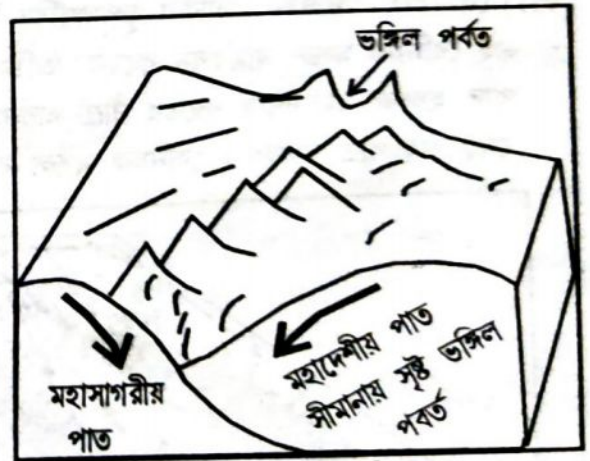 ভঙ্গিল পর্বত
মহাসাগরীয়
পাত
মহাদেশীয় পাত
সীমানায় সৃষ্ট ভঙ্গিল
পবর্ত